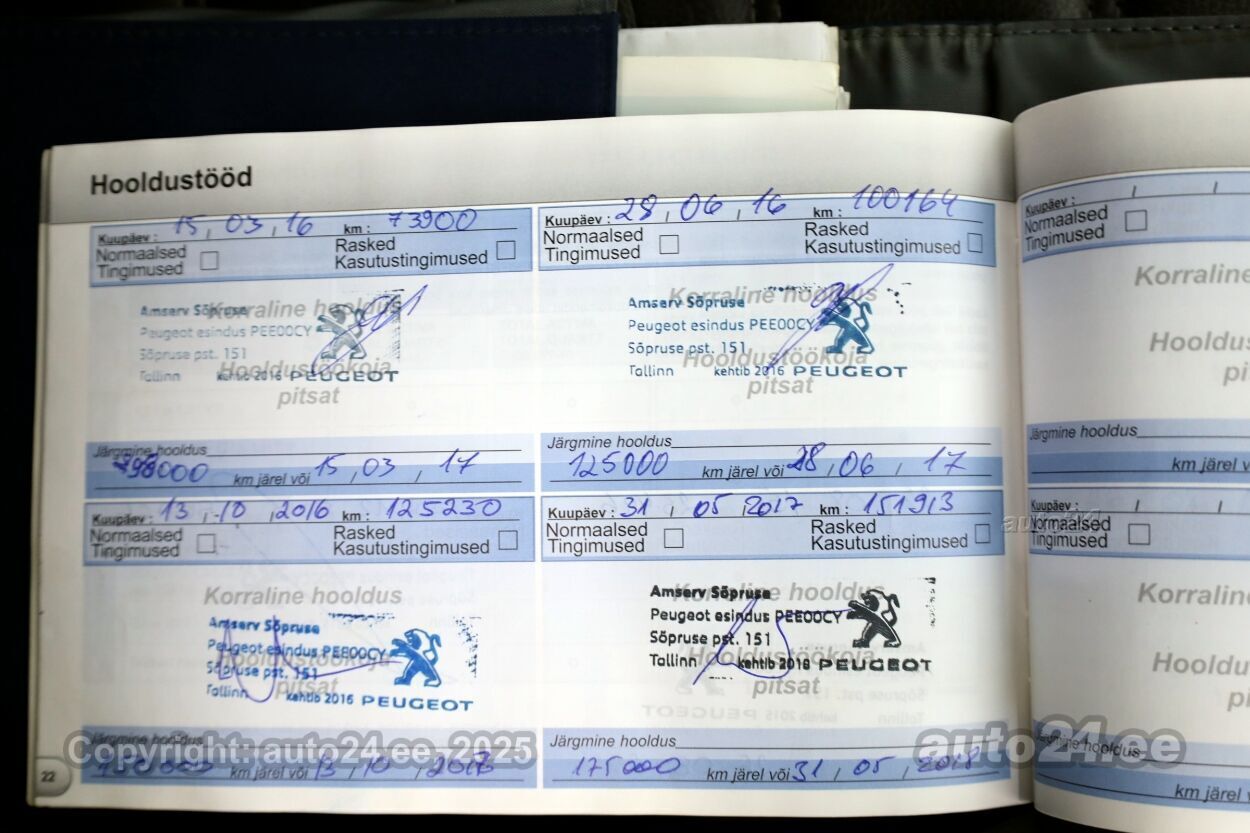 Hooldustööd
Kuupäev : 15 , 03 , 16 km : 73900
Normaalsed Tingimused
Rasked Kasutustingimused
Korraline hooldus
Amserv Sõpruse
Peugeot esindus PEE00CY
Sõpruse pst. 151
Hooldustöökoja
Tallinn kehtib 2016 PEUGEOT
pitsat
Järgmine hooldus
98000 km järel või 15 , 03 , 17
Kuupäev : 28 , 06 , 16 km : 100164
Normaalsed Tingimused
Rasked Kasutustingimused
Korraline hooldus
Amserv Sõpruse
Peugeot esindus PEE00CY
Sõpruse pst. 151
Hooldustöökoja
Tallinn kehtib 2016 PEUGEOT
pitsat
Järgmine hooldus
125000 km järel või 28 , 06 , 17
Kuupäev : 13 , 10 , 2016 km : 125230
Normaalsed Tingimused
Rasked Kasutustingimused
Korraline hooldus
Amserv Sõpruse
Peugeot esindus PEE00CY
Hooldustöökoja
Sõpruse pst. 151
pitsat
Tallinn kehtib 2016 PEUGEOT
Järgmine hooldus
150000 km järel või 13 , 10 , 2017
Kuupäev : 31 , 05 , 2017 km : 151913
Normaalsed Tingimused
Rasked Kasutustingimused
Korraline hooldus
Amserv Sõpruse
Peugeot esindus PEE00CY
Sõpruse pst. 151
Hooldustöökoja
Tallinn kehtib 2018 PEUGEOT
pitsat
Järgmine hooldus
175000 km järel või 31 , 05 , 2018
22
Kuupäev :
Normaalsed Tingimused
Korraline
Järgmine hooldus
km järel
Kuupäev :
Normaalsed Tingimused
Korraline
Järgmine hooldus
km järel
auto24
Copyright: auto24.ee, 2025
auto24.ee